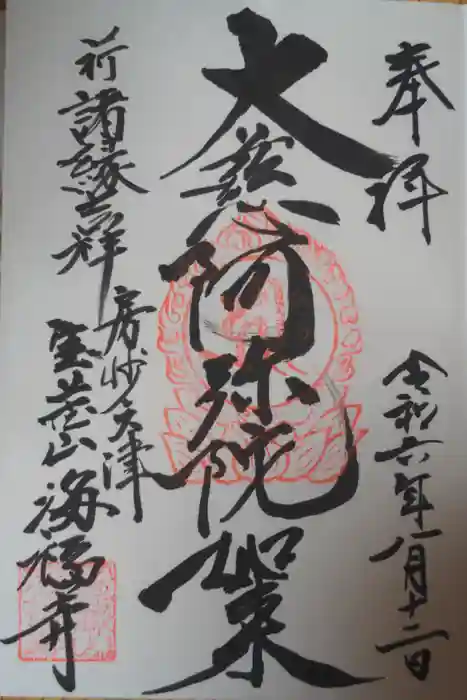 奉拝
令和六年八月十二日
大慈阿弥陀如来
祈 諸縁吉祥
房州天津
山 海福寺